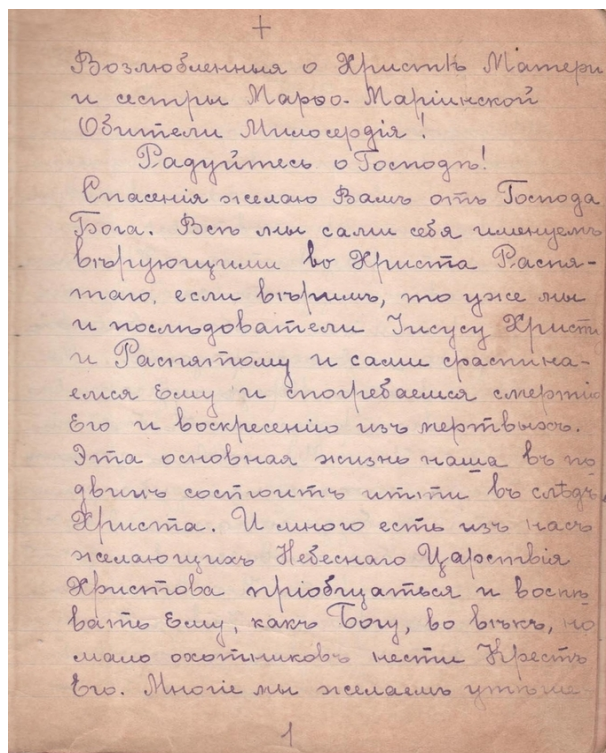 +
Возлюбленныя о Христѣ Матери
и сестры Марѳо-Маріинской
Обители Милосердія!
Радуйтесь о Господѣ!
Спасенія желаю Вамъ отъ Господа
Бога. Всѣ мы сами себя именуемъ
вѣрующими во Христа Распя-
таго, если вѣримъ, то уже мы
и послѣдователи Іисусу Христу
и Распятому и сами сраспина-
емся Ему и спогребаемся смертію
Его и воскресенію изъ мертвыхъ.
Эта основная жизнь наша въ по
двигѣ состоитъ итти въ слѣдъ
Христа. И много есть изъ насъ
желающихъ Небеснаго Царствія
Христова пріобщаться и воспѣ
вать Ему, какъ Богу, во вѣкъ, но
мало охотниковъ нести Крестъ
Его. Многіе мы желаемъ утѣше-
1